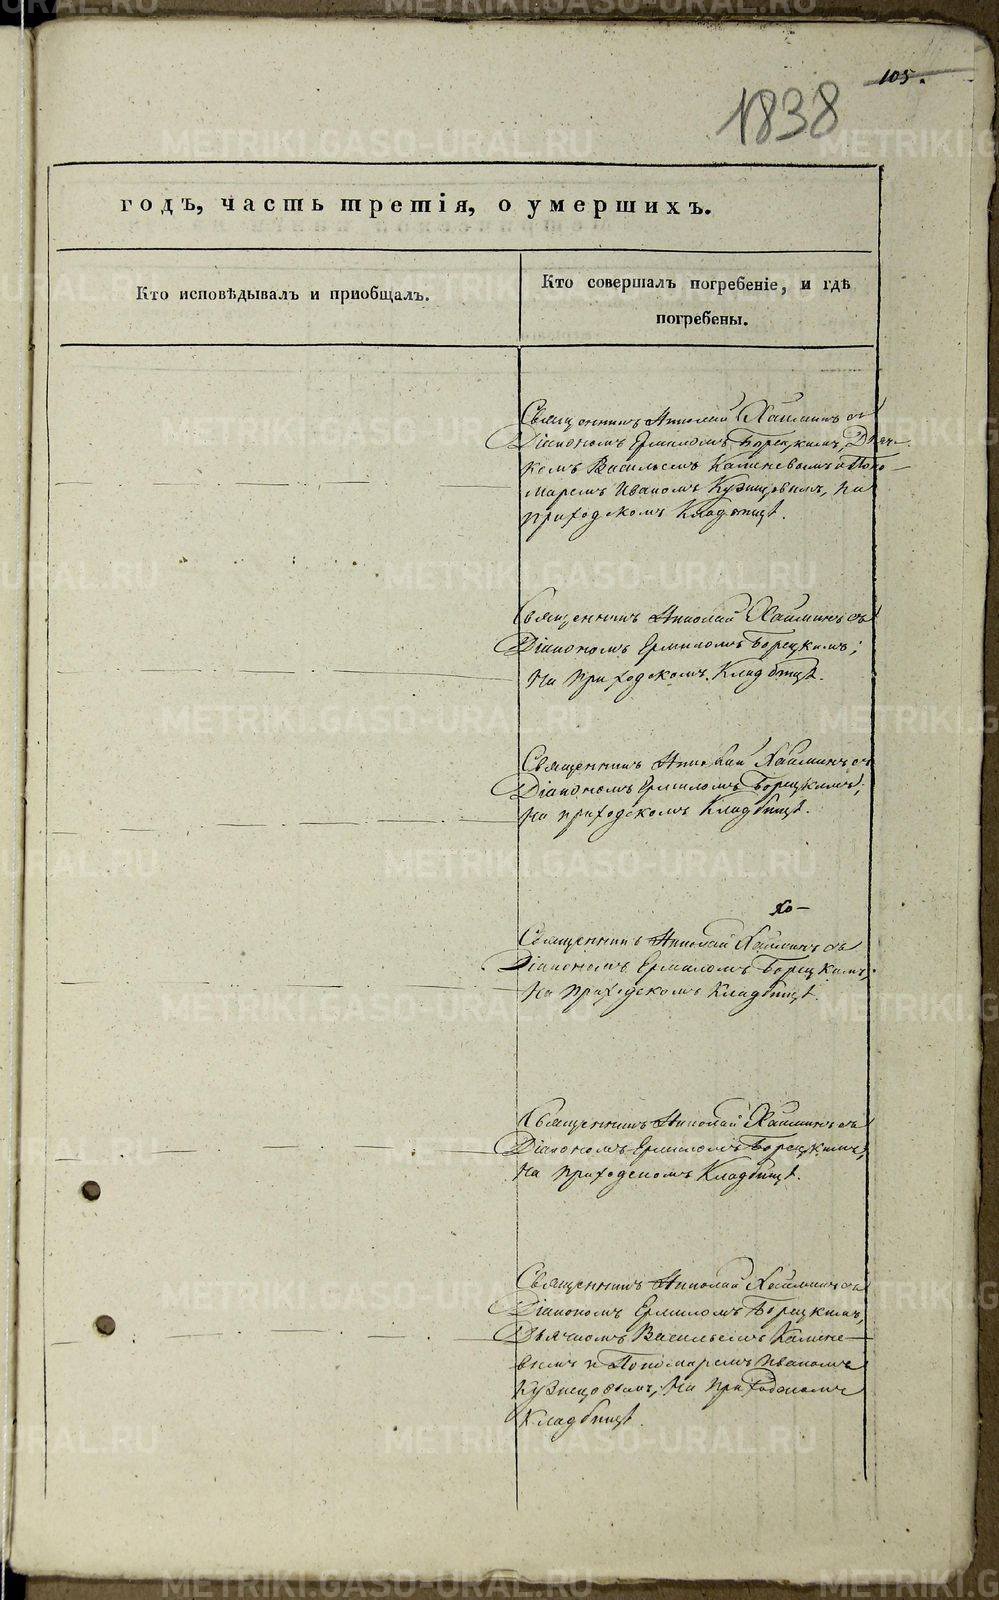 105.
1838
годъ, часть третія, о умершихъ.
Кто исповѣдывалъ и приобщалъ.
Кто совершалъ погребеніе, и гдѣ
погребены.
Священникъ Николай Хайминъ съ
Діакономъ Ермиломъ Борецкимъ, Дьяч-
комъ Васильемъ Калиневымъ и Поно-
маремъ Иваномъ Кузнецовымъ, на
приходскомъ Кладбищѣ.
Священникъ Николай Хайминъ съ
Діакономъ Ермиломъ Борецкимъ;
На приходскомъ Кладбищѣ.
Священникъ Николай Хайминъ съ
Діакономъ Ермиломъ Борецкимъ;
На приходскомъ Кладбищѣ.
Священникъ Николай Хайминъ съ
Діакономъ Ермиломъ Борецкимъ;
На приходскомъ Кладбищѣ.
Священникъ Николай Хайминъ съ
Діакономъ Ермиломъ Борецкимъ;
На приходскомъ Кладбищѣ.
Священникъ Николай Хайминъ съ
Діакономъ Ермиломъ Борецкимъ,
Дьячкомъ Васильемъ Калине-
вымъ и Пономаремъ Иваномъ
Кузнецовымъ; На приходскомъ
Кладбищѣ.
METRIKI.GASO-URAL.RU